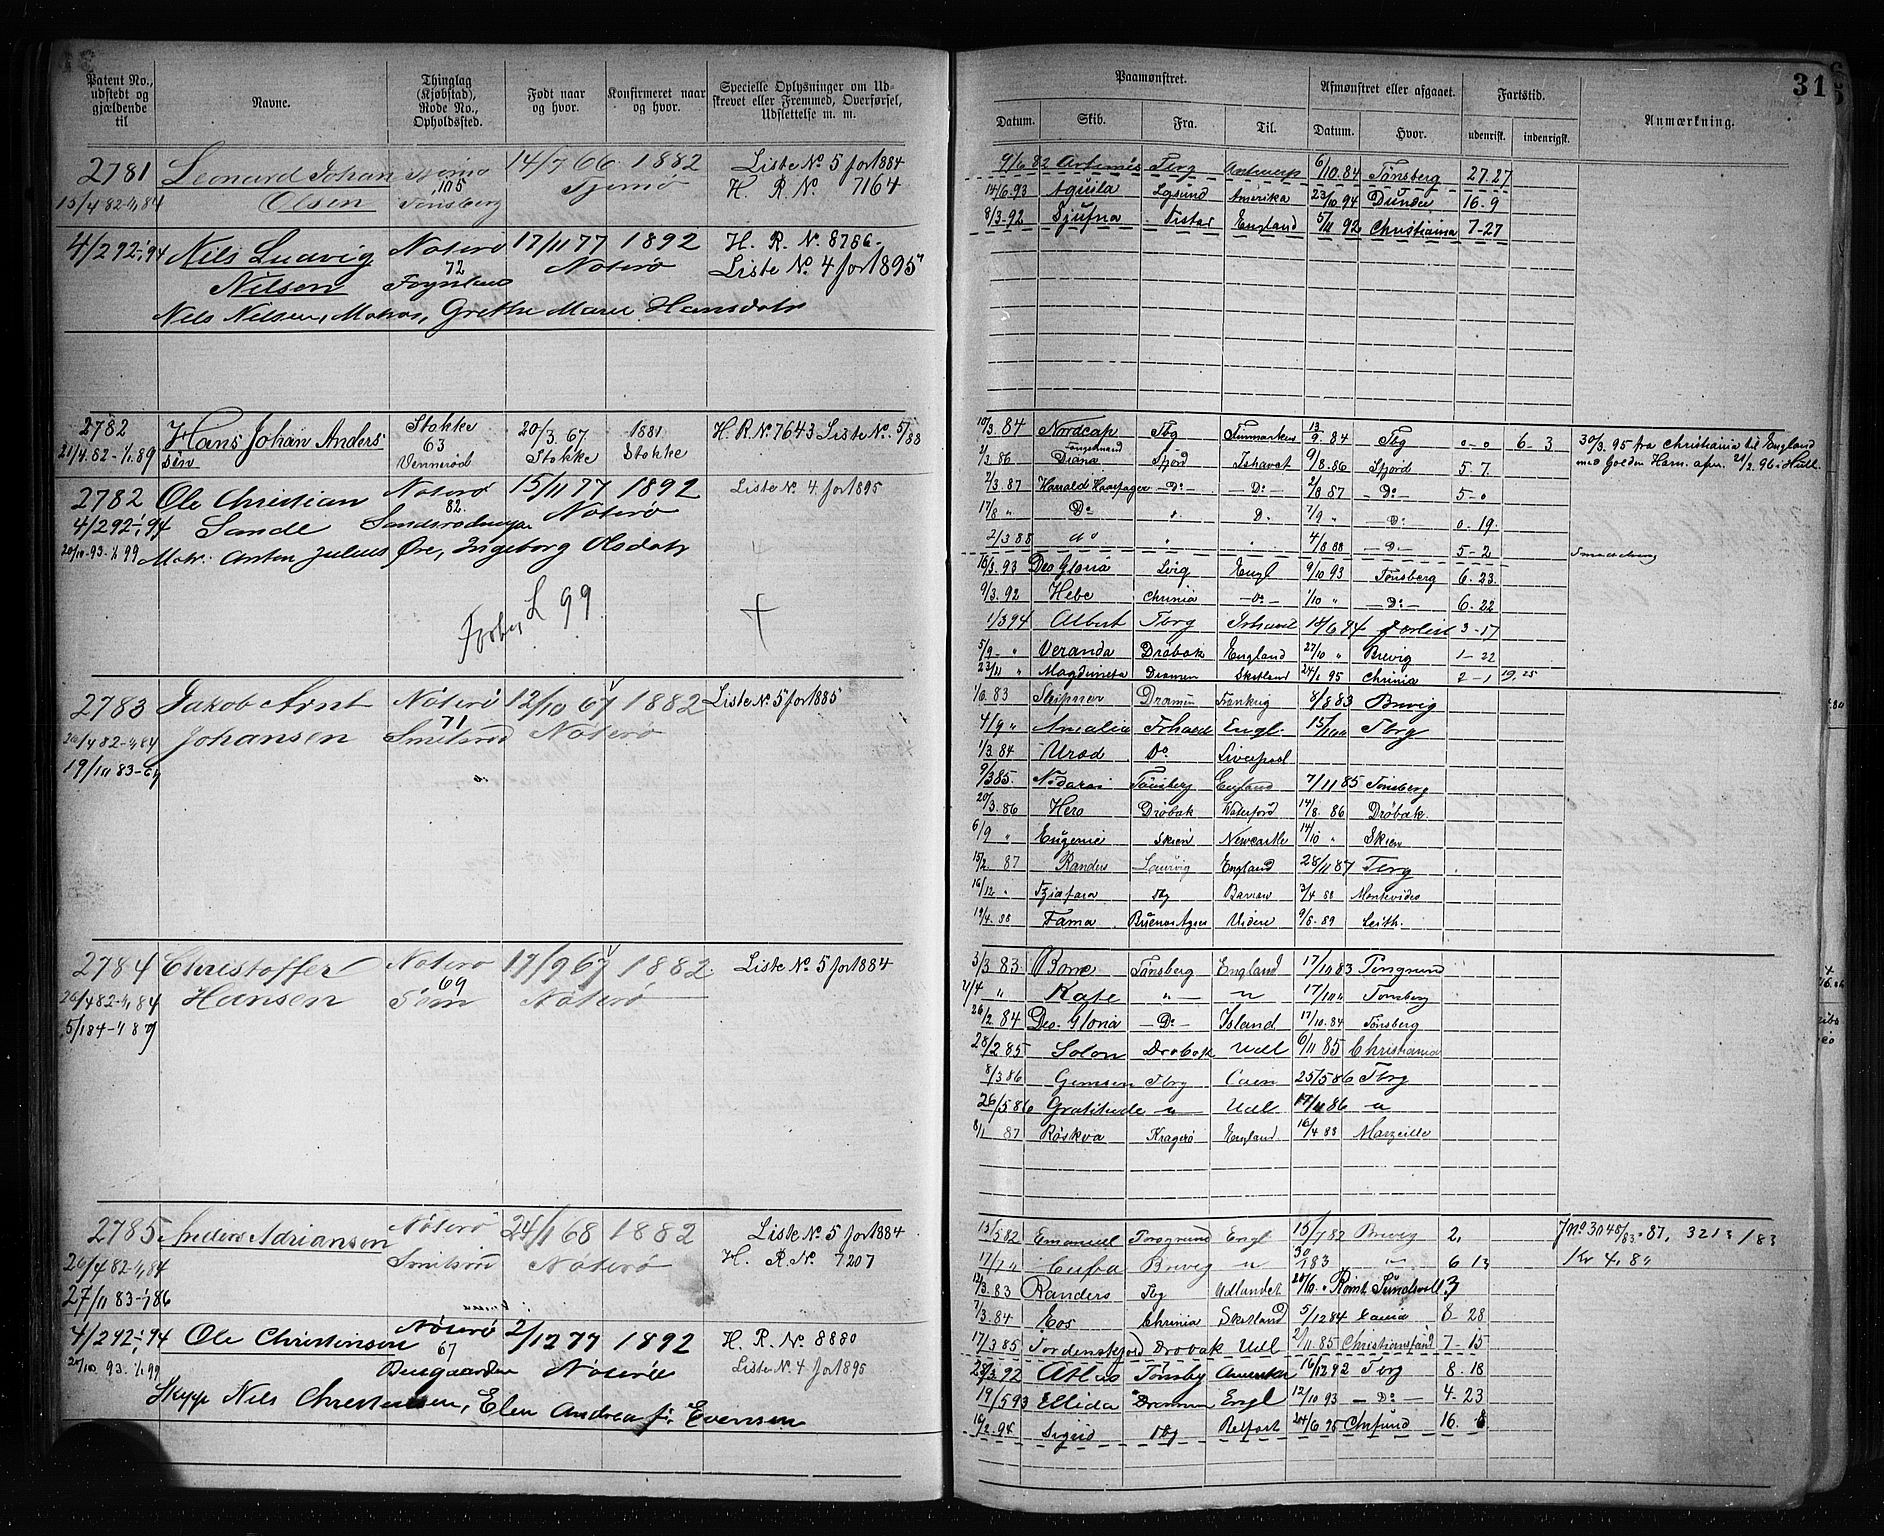 31
Patent No., udstedt og gjældende til
Navne.
Thinglag (Kjøbstad), Rode No., Opholdssted.
Født naar og hvor.
Konfirmeret naar og hvor.
Specielle Oplysninger om Udskrevet eller Fremmed, Overførsel, Udslettelse m. m.
2781 Leonard Johan Tjømø 14/7 66 1882 Liste No. 5 for 1884
105 Tjømø H. R. No. 7164
15/4 82-1/1 84 Olsen Tønsberg
4/2 92-1/1 94 Nils Ludvig Nøterø 17/11 77 1892 H. R. No. 8786
72 Nøterø Liste No. 4 for 1895
Nilsen
Nils Nilsen, Matros, Grethe Marie Hansdatr
2782 Hans Johan Anders- Stokke 20/3. 67 1881 H. R. No. 7643 Liste No. 5/88
63
21/4. 82-1/1. 89 sen Vennerød Stokke Stokke
2782 Ole Christian Nøterø 15/11 77 1892 Liste No. 4 for 1895
82.
4/2 92-1/1 94 Sande Nøterø
20/10 93-1/1 99 Matr. Anton Julius Øre, Ingeborg Olsdatr
L 99
2783 Jakob Arnt Nøterø 12/10 67 1882 Liste No. 5 for 1885
71
26/4 82-1/1 84 Johansen Smidsrød Nøterø
19/11 83-
2784 Christoffer Nøterø 17/9 67 1882 Liste No. 5 for 1884
69
26/4 82-1/1 84 Hansen Tem Nøterø
5/1 84-1/1 87
2785 Anders Adriansen Nøterø 24/1 68 1882 Liste No. 5 for 1884
26/4 82-1/1 84 Smidsrød Nøterø H. R. No. 7207
27/11 83-1/1 86
4/2 92-1/1 94 Ole Christensen Nøterø 2/12 77 1892 H. R. No. 8880
67
20/10 93. 1/1 99 Nøterø Liste No. 4 for 1895
Nils Christensen, Elen Andrea f. Evensen
Paamønstret.
Afmønstret eller afgaaet.
Fartstid.
Anmærkning.
Datum. Skib. Fra. Til. Datum. Hvor. udenrigsk. indenrigsk.
9/6 82 Artemis Tbrg Antwerp 6/10. 84 Tønsberg 27. 27
14/6. 93 Aquila Amerika 23/10. 94 Dundee 16. 9
8/3. 92 England 5/11 92 Christiania 7-27
10/3. 84 Nordcap Tbg Finmarken 13/9. 84 Tbg 0-0 6-3 30/3. 95 fra Christiania til England
1/3 86 Diana Sfjord Ishavet 9/8. 86 Sfjord 5. 7. med Golden Horn. afm. 21/2. 96 i Hull
2/3. 87 Harald Haarfager Do Do 2/8 87 Do 5-0
17/8 " Do " D. 7/9 " Do 0. 19.
2/3 88 do " " 4/8 88 Do 5-2
16/3. 93 Deo Gloria Engl 9/10 93 Tønsberg 6. 23.
9/3. 92 Hebe Chrinia Do 1/10 " Do 6. 22
1/3 94 Albert Tbrg Ishavet 18/6 94 3-17
5/9 " Veranda Drøbak England 27/10 " Brevig 1-22
23/11 " Dramen Skotland 24/1 95 Chrinia 2-1 19, 25
1/6. 83 Skipsner Dramen Frankrig 8/8 83 Brevig
4/9 " Amalia Frhald Engl. 15/10 Tbrg
1/3. 84 Urød Do Liverpool
9/3 85. Nidaros Tønsberg England 7/11 85 Tønsberg
20/3. 86 Hero Drøbak Waterford 14/8. 86 Drøbak.
6/9 " Eugenie Skien Newcastle 14/10 " Skien
15/2. 87 Randers Laurvig England 28/11 87 Tbrg
16/12 " Tbg 3/4 88 Montevideo
19/4. 88 Fama Buenos Ayres Videre 9/8-89 Leith.
3/3. 83 Borre Tønsberg England 17/10 83 Porsgrund
2/4 " Kape " " 17/10 " Tønsberg
26/2. 84 Deo Gloria Do Island 17/10. 84 Tønsberg
28/2 85 Solon Drøbak Udl 6/11 85 Christiania
8/3 86 Gemsen Tbrg Caen 25/5 86 Tbrg
26/5 86 Gratitude " Udl 17/11 86 "
8/1 87 Røskva Kragerø England 16/4 88 Marzeille
15/5 82 Emanuel Porsgrund Engl 15/7 82 Brevig 2,
17/7 " Cuba Brevig " 30/1 83 " 6 13 Kr 4, 8
12/3. 83 Randers Tbg Udlandet Rømt Sundsvall 3
7/3. 84 Eos Chrinia Skotland 5/12 84 8-28
17/3 85 Tordenskjold Drøbak Udl 2/11 85 Christiansand 7-15
28/3 92 Atlas Tønsbg Amerika 16/12 92 Tbrg 8. 18
19/5 93 Ellida Drammen Engl 12/10 93 Do 4-23
16/2. 94 Sigrid Tbg Belfast 24/6 95 Chrsund 16. 8